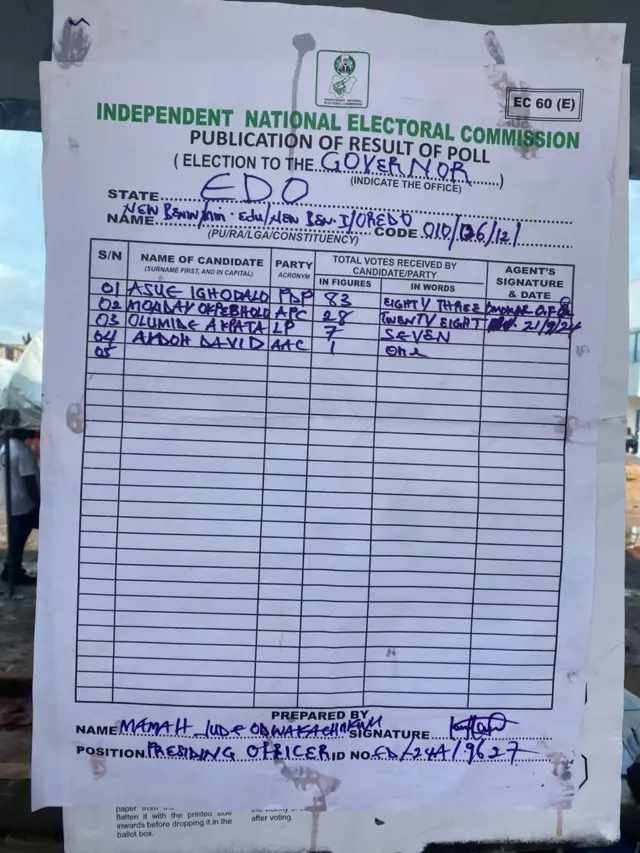 INDEPENDENT NATIONAL ELECTORAL COMMISSION
EC 60 (E)
INDEPENDENT NATIONAL ELECTORAL COMMISSION
PUBLICATION OF RESULT OF POLL
( ELECTION TO THE GOVERNOR )
(INDICATE THE OFFICE)
STATE EDO
NAME CODE 010/
(PU/RA/LGA/CONSTITUENCY)
S/N NAME OF CANDIDATE PARTY TOTAL VOTES RECEIVED BY CANDIDATE/PARTY AGENT'S SIGNATURE & DATE
(SURNAME FIRST, AND IN CAPITAL) ACRONYM IN FIGURES IN WORDS
01 ASUE IGHODALO PDP 83 EIGHTY THREE
02 MONDAY APC 28 TWENTY EIGHT 21/9/24
03 OLUMIDE AKPATA LP 7 SEVEN
04 DAVID AAC 1 One
05
PREPARED BY
NAME MAMAH JUDE SIGNATURE
POSITION PRESIDING OFFICER ID NO. ED/24A/9627
flatten it with the printed side
inwards before dropping it in the
ballot box.
after voting.